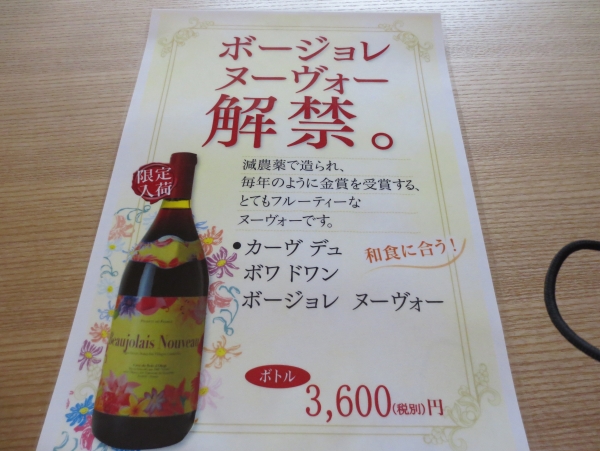 ボージョレ
ヌーヴォー
解禁。
限定
入荷
減農薬で造られ、
毎年のように金賞を受賞する、
とてもフルーティーな
ヌーヴォーです。
•カーヴ デュ
ボワ ドワン
ボージョレ ヌーヴォー
和食に合う!
Beaujolais Nouveau
ボトル
3,600(税別)円